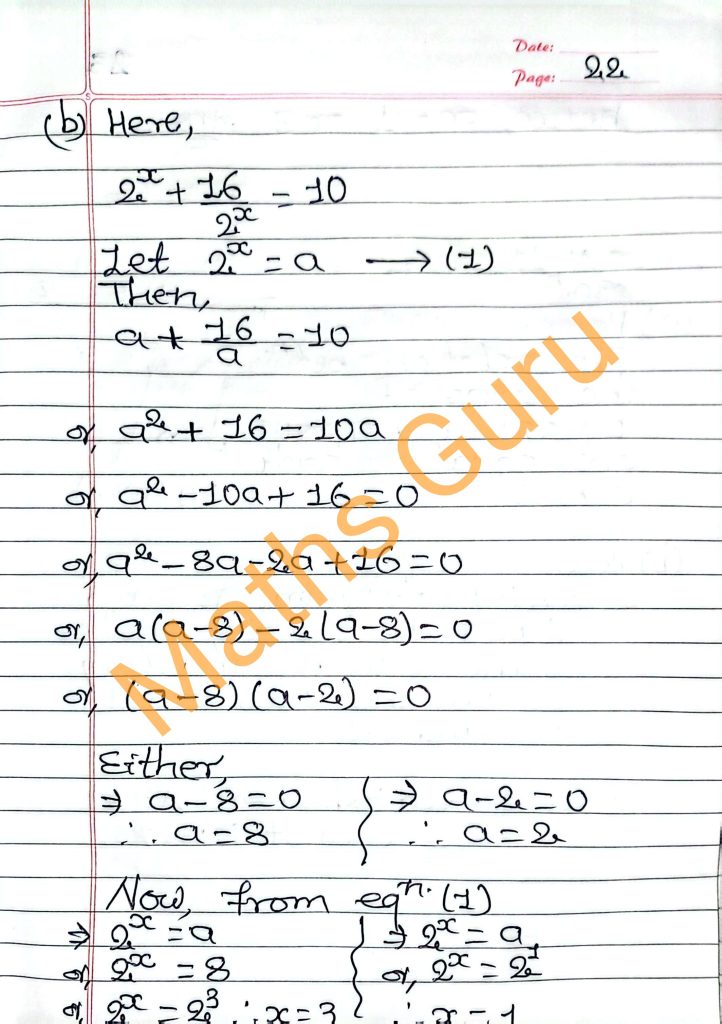 Date:
Page: 22
(b) Here,
2^x + 16/2^x = 10
Let 2^x = a ⟶ (1)
Then,
a + 16/a = 10
or, a² + 16 = 10a
or, a² - 10a + 16 = 0
or, a² - 8a - 2a + 16 = 0
or, a(a-8) - 2(a-8) = 0
or, (a-8) (a-2) = 0
Either,
⇒ a - 8 = 0 ⇒ a - 2 = 0
∴ a = 8 ∴ a = 2
Now, from eqⁿ. (1)
⇒ 2^x = a ⇒ 2^x = a
or, 2^x = 8 or, 2^x = 2^1
or, 2^x = 2^3 ∴ x = 3 ∴ x = 1
Maths Guru